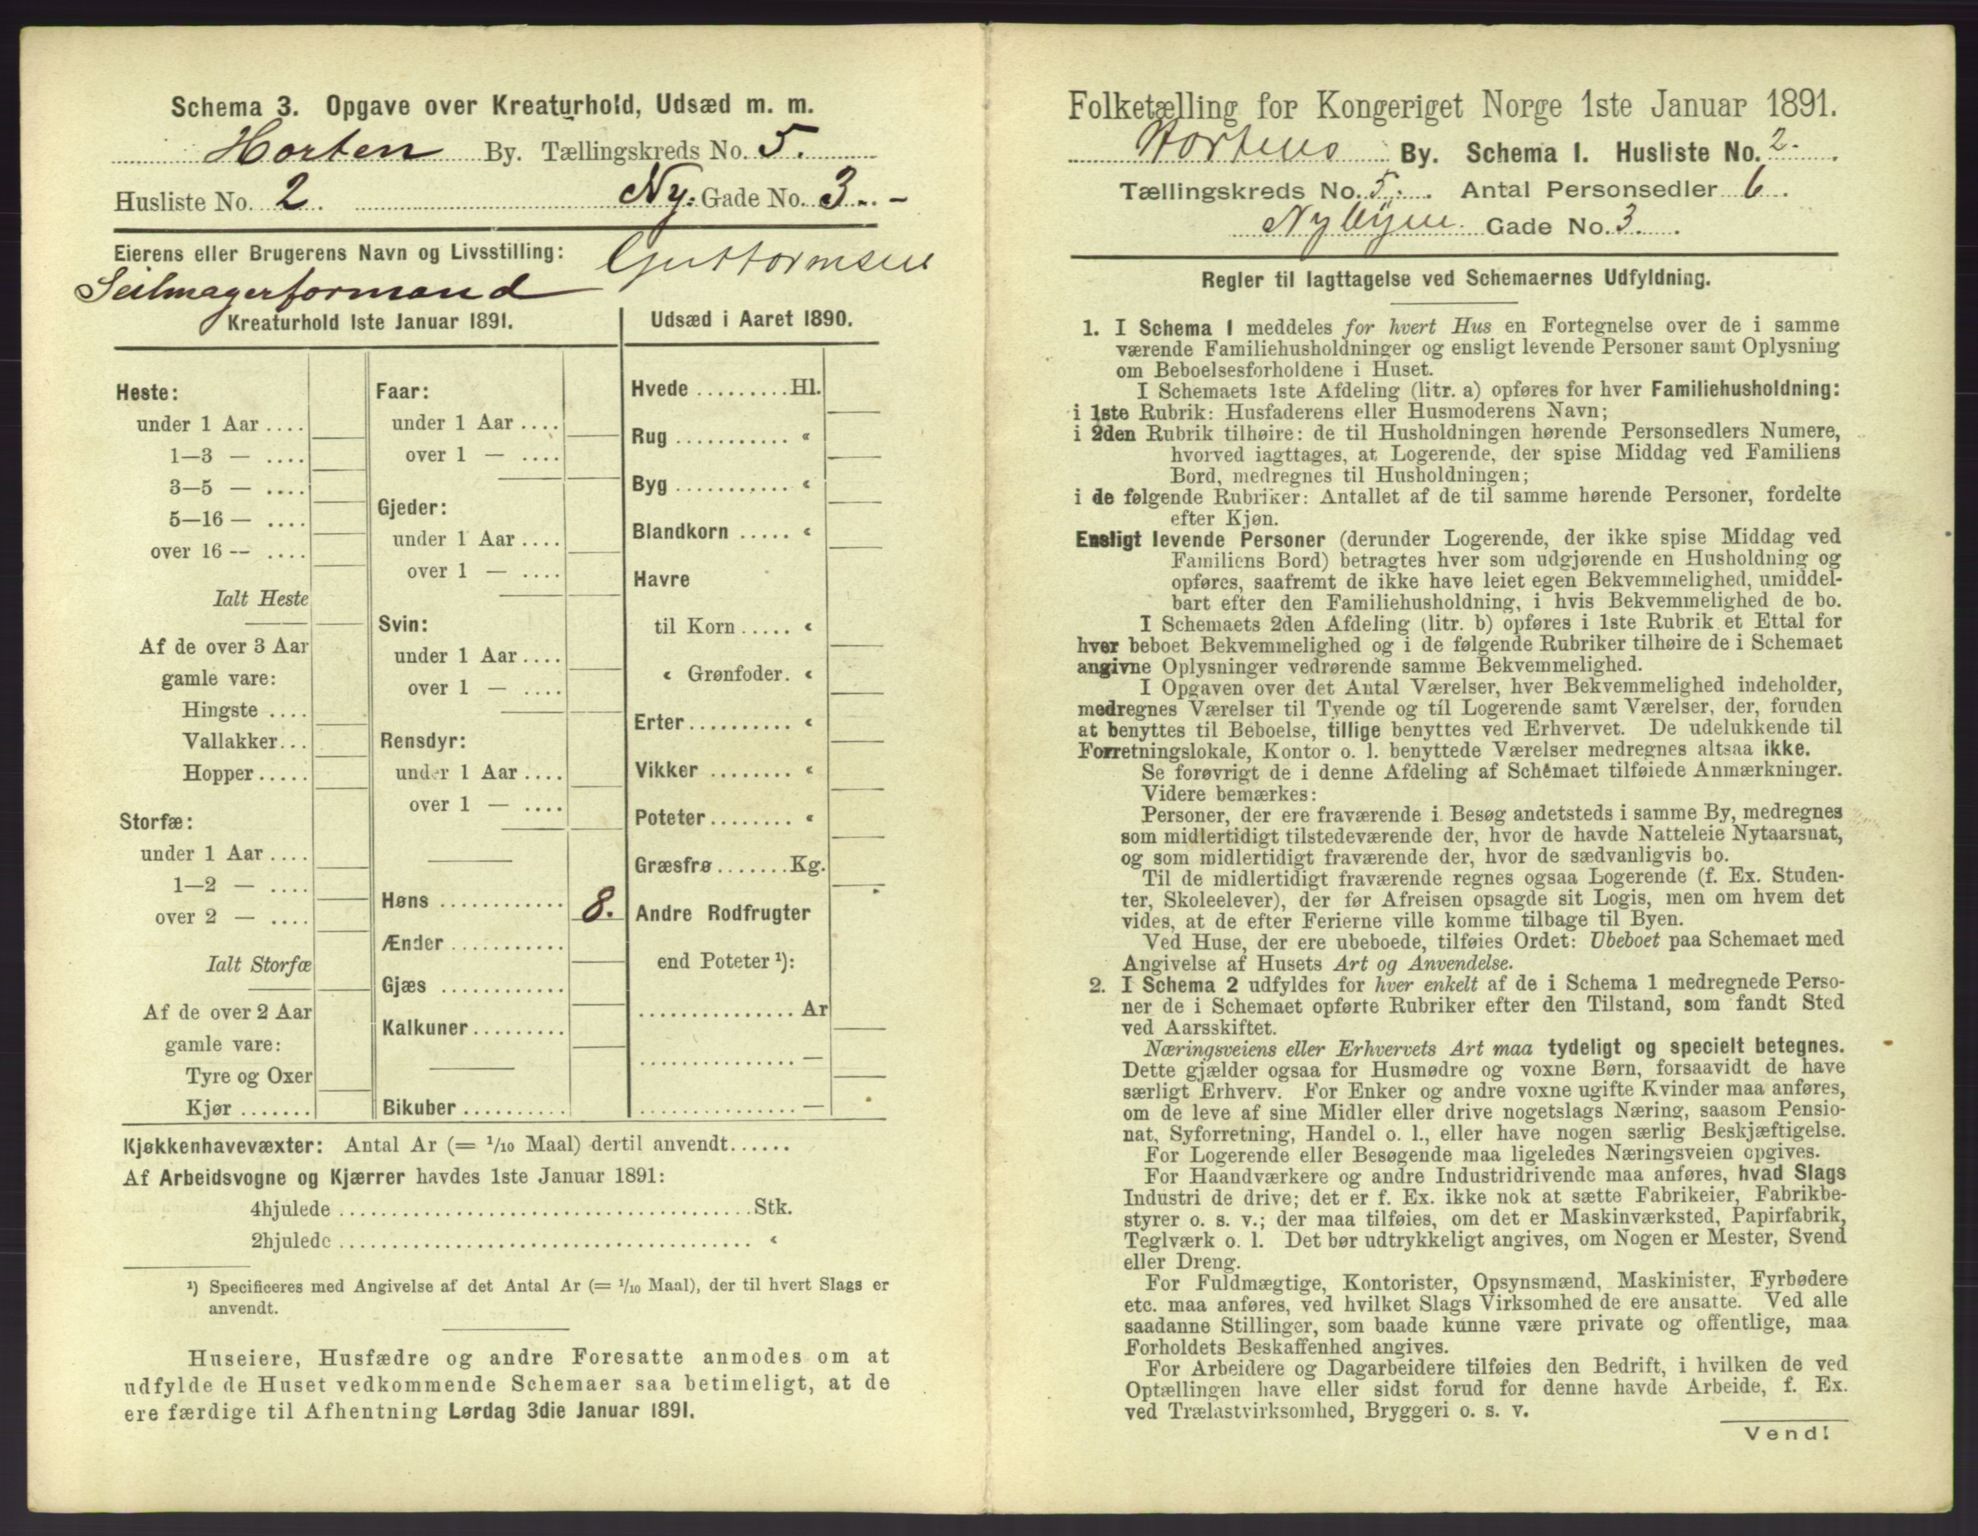 Schema 3. Opgave over Kreaturhold, Udsæd m. m.
Horten By. Tællingskreds No. 5.
Husliste No. 2. Ny. Gade No. 3.
Eierens eller Brugerens Navn og Livsstilling: Guttormsen
Seilmagerformand
Kreaturhold 1ste Januar 1891.
Heste:
under 1 Aar ....
1—3 — ....
3—5 — ....
5—16 — ....
over 16 — ....
Ialt Heste
Af de over 3 Aar
gamle vare:
Hingste ....
Vallakker...
Hopper .....
Storfæ:
under 1 Aar ....
1—2 — ....
over 2 — ....
Ialt Storfæ
Af de over 2 Aar
gamle vare:
Tyre og Oxer
Kjør .......
Faar:
under 1 Aar ....
over 1 — ....
Gjeder:
under 1 Aar ....
over 1 — ....
Svin:
under 1 Aar ....
over 1 — ....
Rensdyr:
under 1 Aar ....
over 1 — ....
Høns ............ 8.
Ænder ...........
Gjæs ............
Kalkuner .........
Bikuber ..........
Udsæd i Aaret 1890.
Hvede ......... Hl.
Rug ........... «
Byg ........... «
Blandkorn ..... «
Havre
til Korn ..... «
« Grønfoder. «
Erter .......... «
Vikker ........ «
Poteter ........ «
Græsfrø ....... Kg.
Andre Rodfrugter
end Poteter ¹):
............... Ar
............... —
............... —
Kjøkkenhavevæxter: Antal Ar (= 1/10 Maal) dertil anvendt......
Af Arbeidsvogne og Kjærrer havdes 1ste Januar 1891:
4hjulede ....................................... Stk.
2hjulede ....................................... «
¹) Specificeres med Angivelse af det Antal Ar (= 1/10 Maal), der til hvert Slags er
anvendt.
Huseiere, Husfædre og andre Foresatte anmodes om at
udfylde de Huset vedkommende Schemaer saa betimeligt, at de
ere færdige til Afhentning Lørdag 3die Januar 1891.
Folketælling for Kongeriget Norge 1ste Januar 1891.
Hortens By. Schema 1. Husliste No. 2.
Tællingskreds No. 5. Antal Personsedler 6.
Nybyen Gade No. 3.
Regler til Iagttagelse ved Schemaernes Udfyldning.
1. I Schema 1 meddeles for hvert Hus en Fortegnelse over de i samme
værende Familiehusholdninger og ensligt levende Personer samt Oplysning
om Beboelsesforholdene i Huset.
I Schemaets 1ste Afdeling (litr. a) opføres for hver Familiehusholdning:
i 1ste Rubrik: Husfaderens eller Husmoderens Navn;
i 2den Rubrik tilhøire: de til Husholdningen hørende Personsedlers Numere,
hvorved iagttages, at Logerende, der spise Middag ved Familiens
Bord, medregnes til Husholdningen;
i de følgende Rubriker: Antallet af de til samme hørende Personer, fordelte
efter Kjøn.
Ensligt levende Personer (derunder Logerende, der ikke spise Middag ved
Familiens Bord) betragtes hver som udgjørende en Husholdning og
opføres, saafremt de ikke have leiet egen Bekvemmelighed, umiddel-
bart efter den Familiehusholdning, i hvis Bekvemmelighed de bo.
I Schemaets 2den Afdeling (litr. b) opføres i 1ste Rubrik et Ettal for
hver beboet Bekvemmelighed og i de følgende Rubriker tilhøire de i Schemaet
angivne Oplysninger vedrørende samme Bekvemmelighed.
I Opgaven over det Antal Værelser, hver Bekvemmelighed indeholder,
medregnes Værelser til Tyende og til Logerende samt Værelser, der, foruden
at benyttes til Beboelse, tillige benyttes ved Erhvervet. De udelukkende til
Forretningslokale, Kontor o. l. benyttede Værelser medregnes altsaa ikke.
Se forøvrigt de i denne Afdeling af Schemaet tilføiede Anmærkninger.
Videre bemærkes:
Personer, der ere fraværende i Besøg andetsteds i samme By, medregnes
som midlertidigt tilstedeværende der, hvor de havde Natteleie Nytaarsnat,
og som midlertidigt fraværende der, hvor de sædvanligvis bo.
Til de midlertidigt fraværende regnes ogsaa Logerende (f. Ex. Studen-
ter, Skoleelever), der før Afreisen opsagde sit Logis, men om hvem det
vides, at de efter Ferierne ville komme tilbage til Byen.
Ved Huse, der ere ubeboede, tilføies Ordet: Ubeboet paa Schemaet med
Angivelse af Husets Art og Anvendelse.
2. I Schema 2 udfyldes for hver enkelt af de i Schema 1 medregnede Perso-
ner de i Schemaet opførte Rubriker efter den Tilstand, som fandt Sted
ved Aarsskiftet.
Næringsveiens eller Erhvervets Art maa tydeligt og specielt betegnes.
Dette gjælder ogsaa for Husmødre og voxne Børn, forsaavidt de have
særligt Erhverv. For Enker og andre voxne ugifte Kvinder maa anføres,
om de leve af sine Midler eller drive nogetslags Næring, saasom Pensio-
nat, Syforretning, Handel o. l., eller have nogen særlig Beskjæftigelse.
For Logerende eller Besøgende maa ligeledes Næringsveien opgives.
For Haandværkere og andre Industridrivende maa anføres, hvad Slags
Industri de drive; det er f. Ex. ikke nok at sætte Fabrikeier, Fabrikbe-
styrer o. s. v.; der maa tilføies, om det er Maskinværksted, Papirfabrik,
Teglværk o. l. Det bør udtrykkeligt angives, om Nogen er Mester, Svend
eller Dreng.
For Fuldmægtige, Kontorister, Opsynsmænd, Maskinister, Fyrbødere
etc. maa anføres, ved hvilket Slags Virksomhed de ere ansatte. Ved alle
saadanne Stillinger, som baade kunne være private og offentlige, maa
Forholdets Beskaffenhed angives.
For Arbeidere og Dagarbeidere tilføies den Bedrift, i hvilken de ved
Optællingen have eller sidst forud for denne havde Arbeide, f. Ex.
ved Trælastvirksomhed, Bryggeri o. s. v.
Vend!